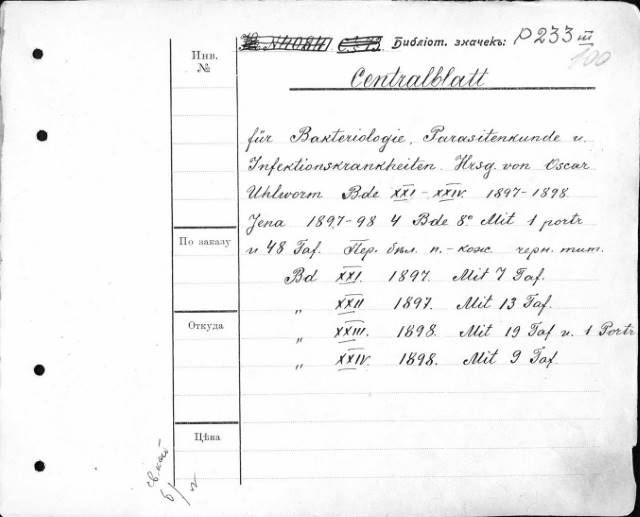 Библіот. значекъ: P 233 III
100
Инв.
№
Centralblatt
für Bakteriologie, Parasitenkunde u.
Infektionskrankheiten. Hrsg. von Oscar
Uhlworm Bde XXI–XXIV. 1897–1898.
Jena 1897–98 4 Bde 8º Mit 1 portr
u 48 Taf. Пер. бѣл. п.-кож. черн. тит.
По заказу
Bd XXI. 1897. Mit 7 Taf.
„ XXII 1897. Mit 13 Taf.
Откуда
„ XXIII. 1898. Mit 19 Taf u. 1 Portr
„ XXIV. 1898. Mit 9 Taf.
Цѣна